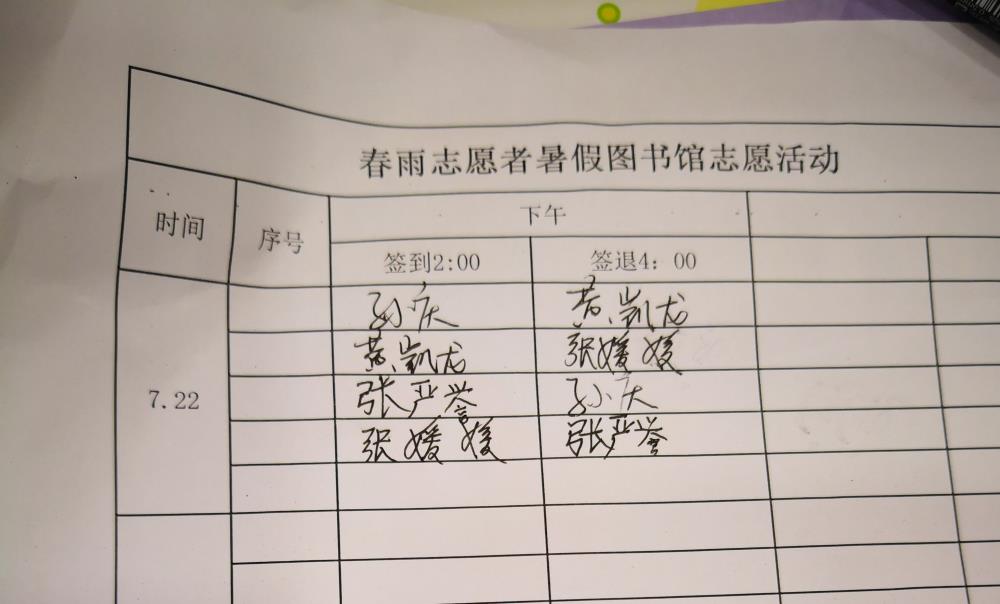 春雨志愿者暑假图书馆志愿活动
时间 序号 下午
签到2:00 签退4:00
孙庆 黄凯龙
黄凯龙 张媛媛
7.22 张严誉 孙庆
张媛媛 张严誉